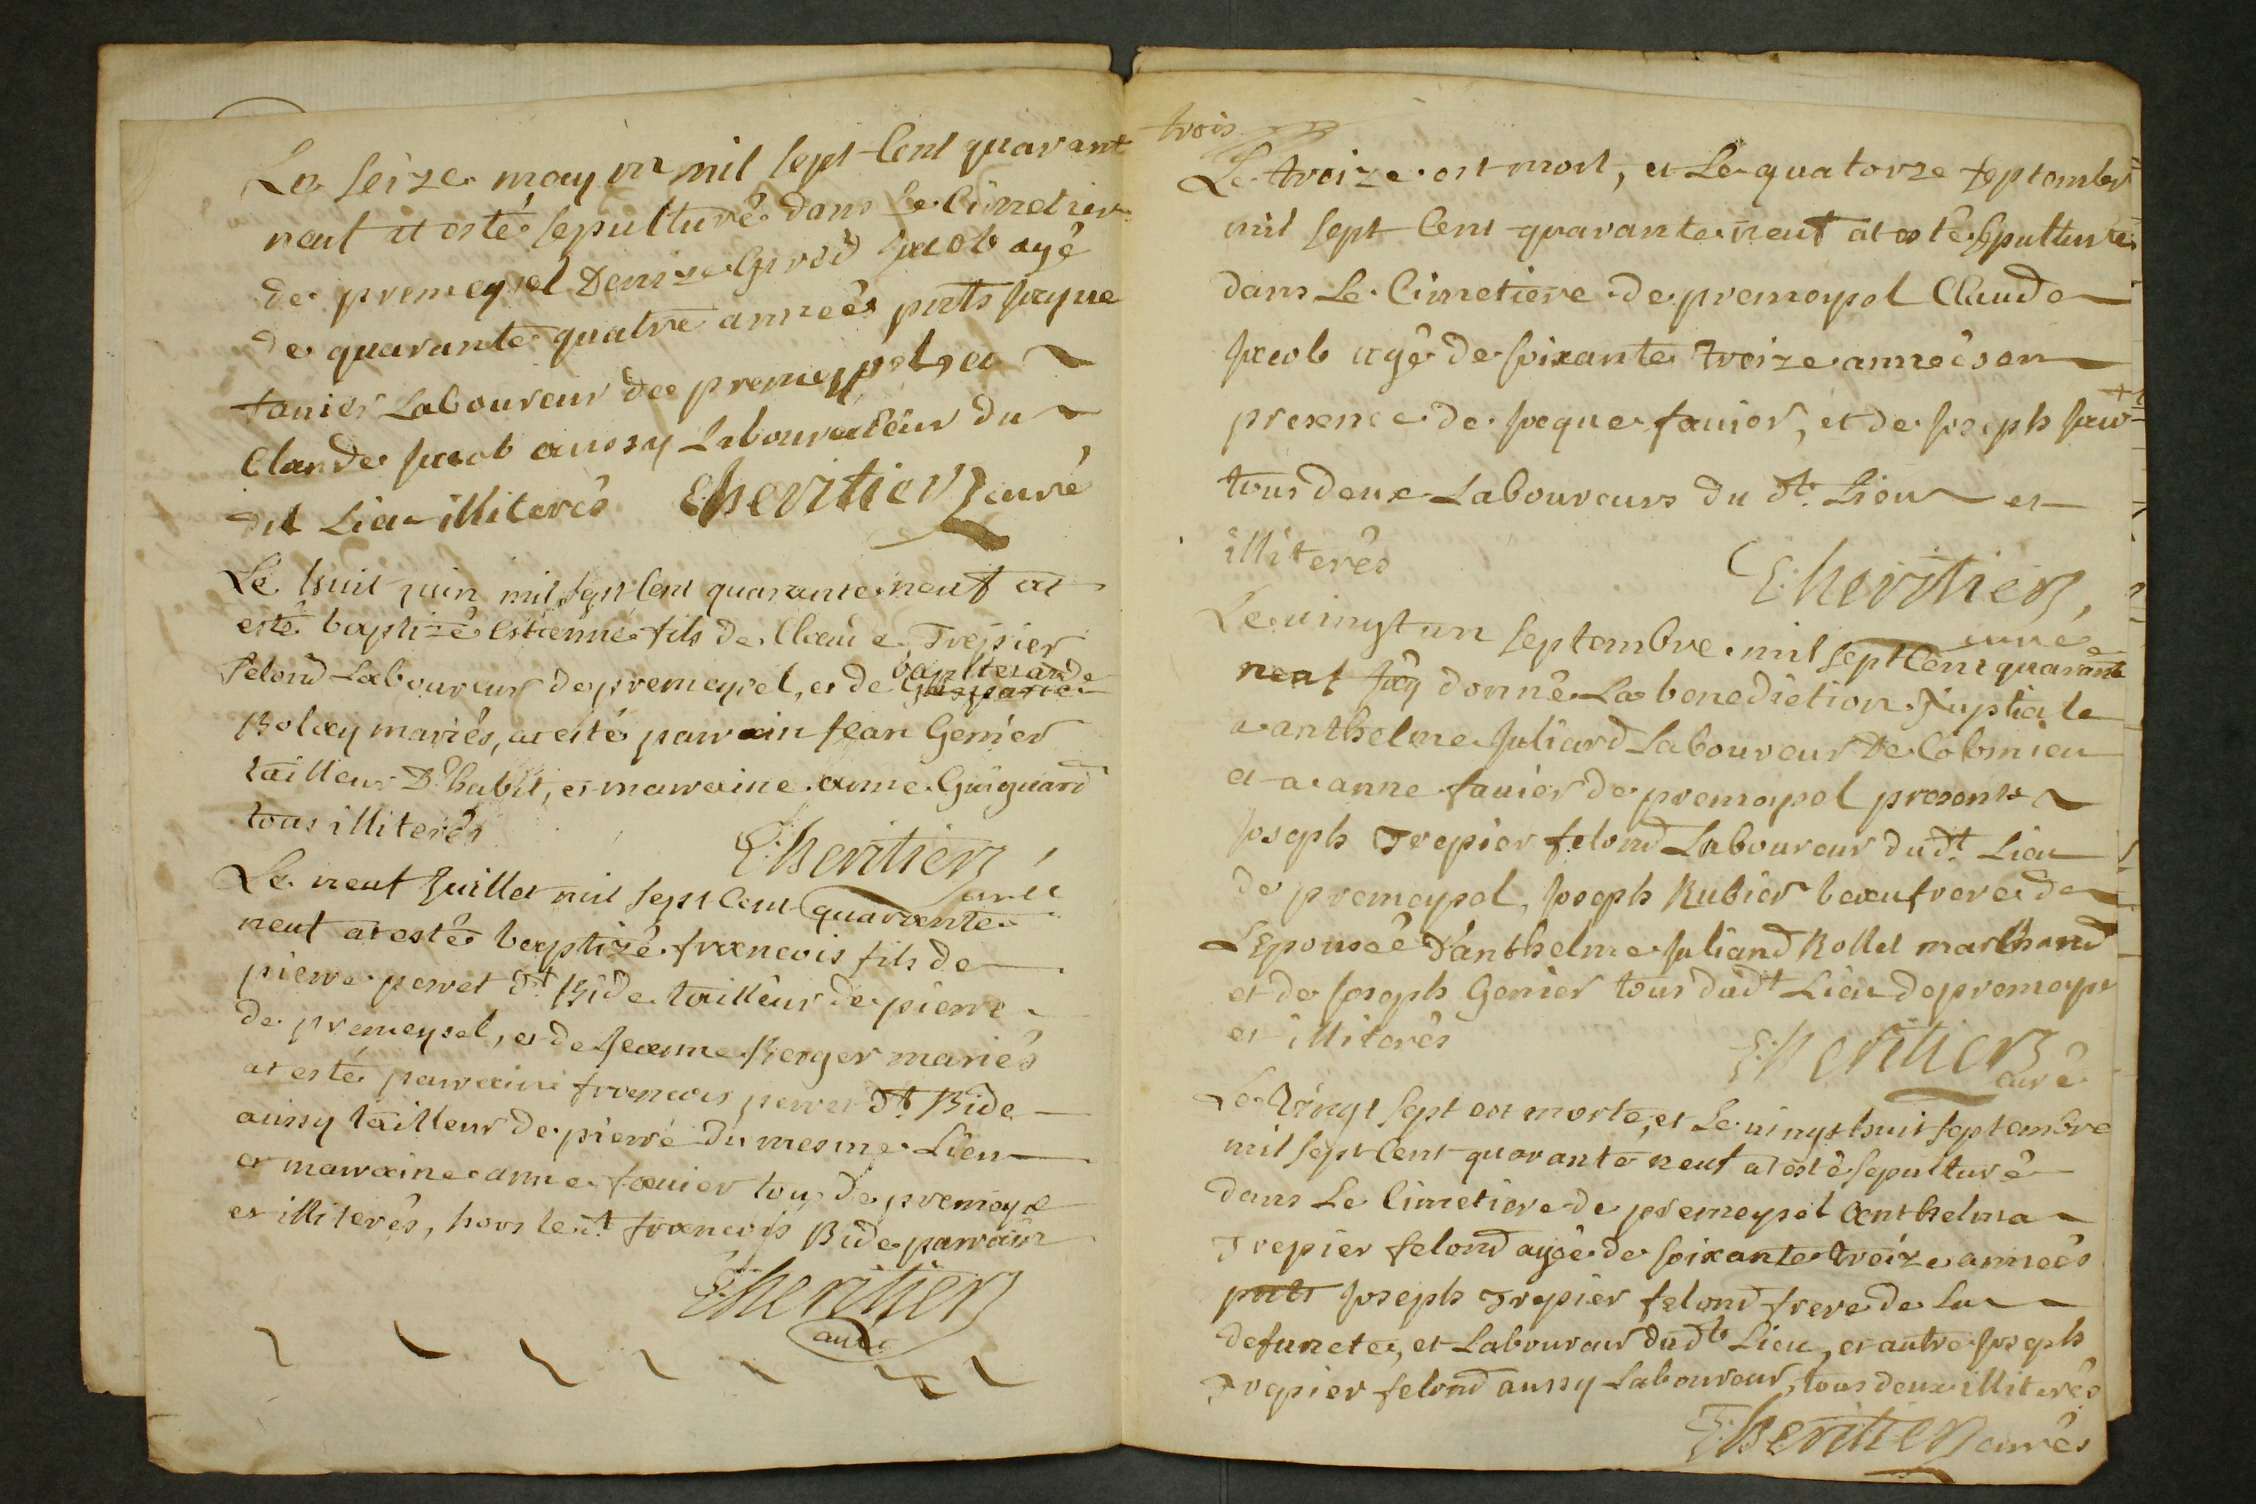 Le seize may mil sept Cent quarant
neuf at esté sepulturé dans Le Cimetier
de premeysel Denize Girod Jacob agé
de quarante quatre anneés pnts Jaque
fauier Laboureur de premeysel, et
Claude Jacob aussy Laboureur du
dit Lieu illiterés E heritier curé
Le huit juin mil sept Cent quarante neuf at
esté baptizé Estienne fils de Claude Trepier
felond Laboureur de premeysel, et de
Bolley mariés, at esté parrain Jean Genier
tailleur D'habit, et marraine anne Guiguard
tous illiterés E heritier
curé
Le neuf Juillet mil sept Cent quarante
neuf at esté baptizé francois fils de
pierre perret dt Bide tailleur de pierre
de premeysel, et de Jeanne Berger mariés
at esté parrain francois perret dt Bide
aussy tailleur de pierre du mesme Lieu
et marraine anne fauier tous de premeyse
et illiterés, hors ledt francois Bide parrain
E heritier
curé
trois
Le treize est mort, et Le quatorze septembre
mil sept Cent quarante neuf at esté sepulture
dans Le Cimetiere de premeysel Claude
Jacob agé de soixante treize anneés en
presence de Jaque fauier, et de Joseph Jaco
tous deux Laboureurs du dt. Lieu et
illiterés E heritier,
curé
Le vingt un septembre mil sept Cent quarante
neuf Jay donné La benediction Nuptiale
a anthelme Juliard Laboureur de Colomieu
et a anne fauier de premeysel presents
Joseph Trepier felond Laboureur dudt. Lieu
de premeysel, Joseph Rubier beaufrere de
L'Epouseé d'anthelme Juliand Rollet marChand
et de Joseph Genier tous dudt Lieu de premeyse
et illiterés E heritier
curé
Le Vingt sept est morte, et Le vingt huit septembre
mil sept Cent quarante neuf at esté sepulturé
dans Le Cimetiere de premeysel anthelma
Trepier felond ageé de soixante treize anneés
pnts Joseph Trepier felond frere de La
defuncte, et Laboureur dudt Lieu, et autre Joseph
Trepier felond aussy Laboureur, tous deux illiterés
E heritier curés